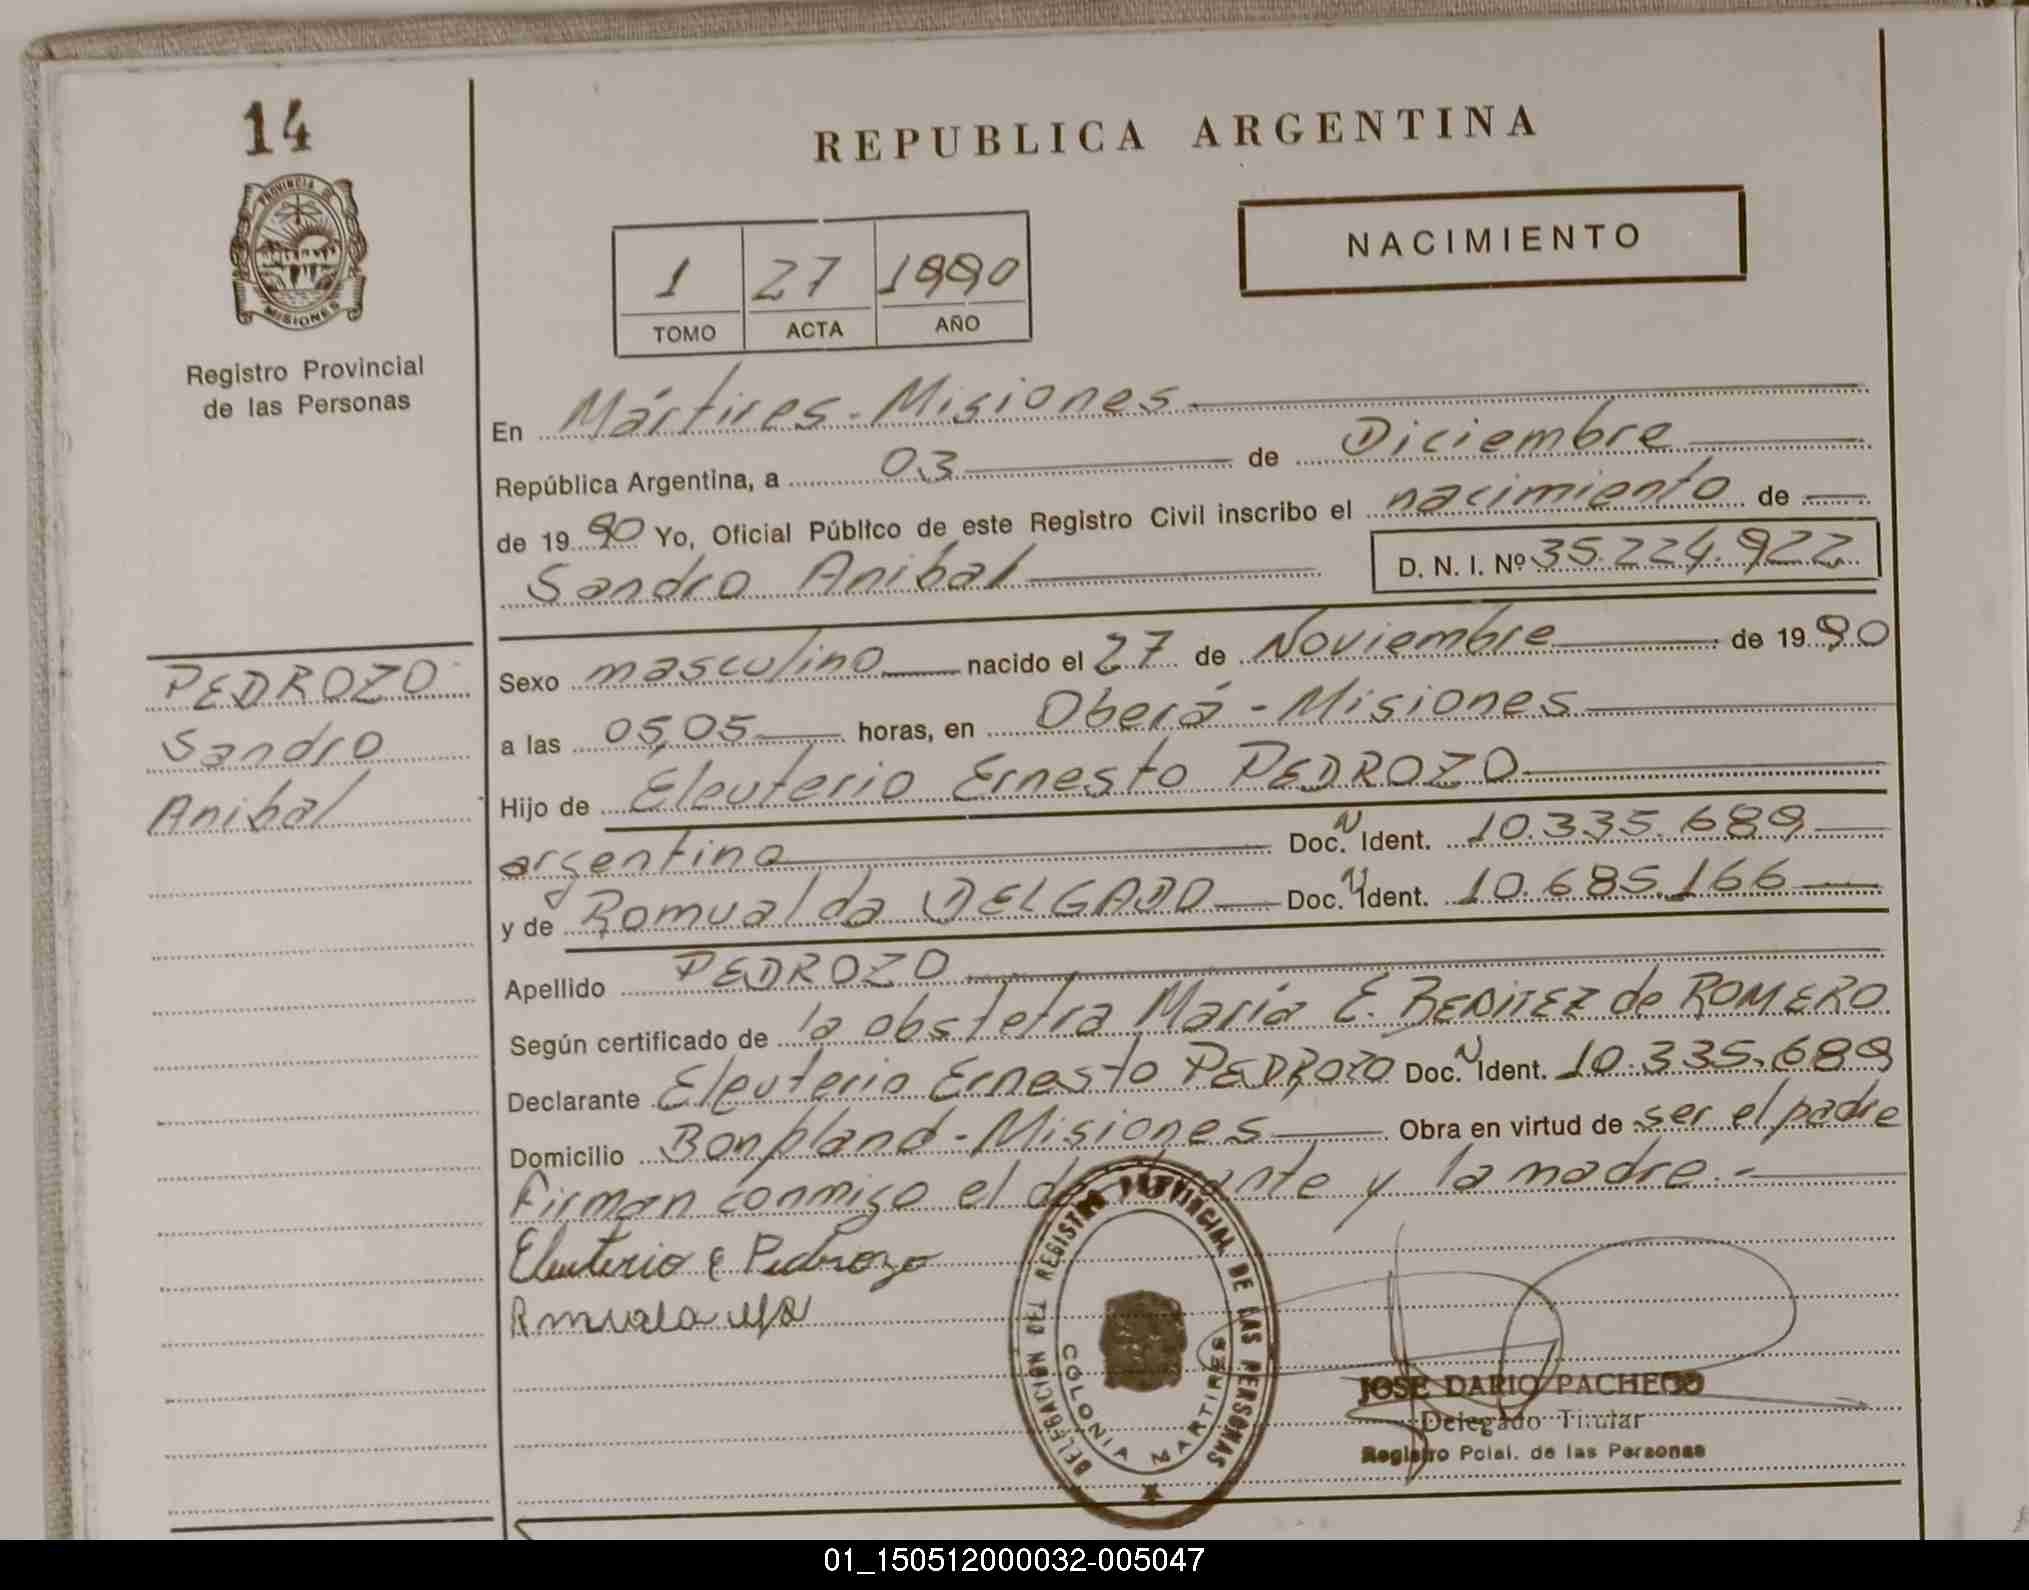 14
PROVINCIA DE
MISIONES
Registro Provincial
de las Personas
REPUBLICA ARGENTINA
NACIMIENTO
1 27 1990
TOMO ACTA AÑO
En Mártires - Misiones
República Argentina, a 03 de Diciembre
de 1990 Yo, Oficial Público de este Registro Civil inscribo el nacimiento de
Sandro Anibal D. N. I. Nº 35.224.922
PEDROZO
Sandro
Anibal
Sexo masculino nacido el 27 de Noviembre de 1990
a las 05,05 horas, en Oberá - Misiones
Hijo de Eleuterio Ernesto PEDROZO
argentino Doc. N Ident. 10.335.689
y de Romualda DELGADO Doc. N Ident. 10.685.166
Apellido PEDROZO
Según certificado de la obstetra María E. BENITEZ de ROMERO
Declarante Eleuterio Ernesto PEDROZO Doc. N Ident. 10.335.689
Domicilio Bonpland - Misiones Obra en virtud de ser el padre
Firman conmigo el declarante y la madre.-
Eleuterio E Pedrozo
DELEGACION DEL REGISTRO PROVINCIAL DE LAS PERSONAS
COLONIA MARTIRES
JOSE DARIO PACHECO
Delegado Titular
Registro Pcial. de las Personas
01_150512000032-005047